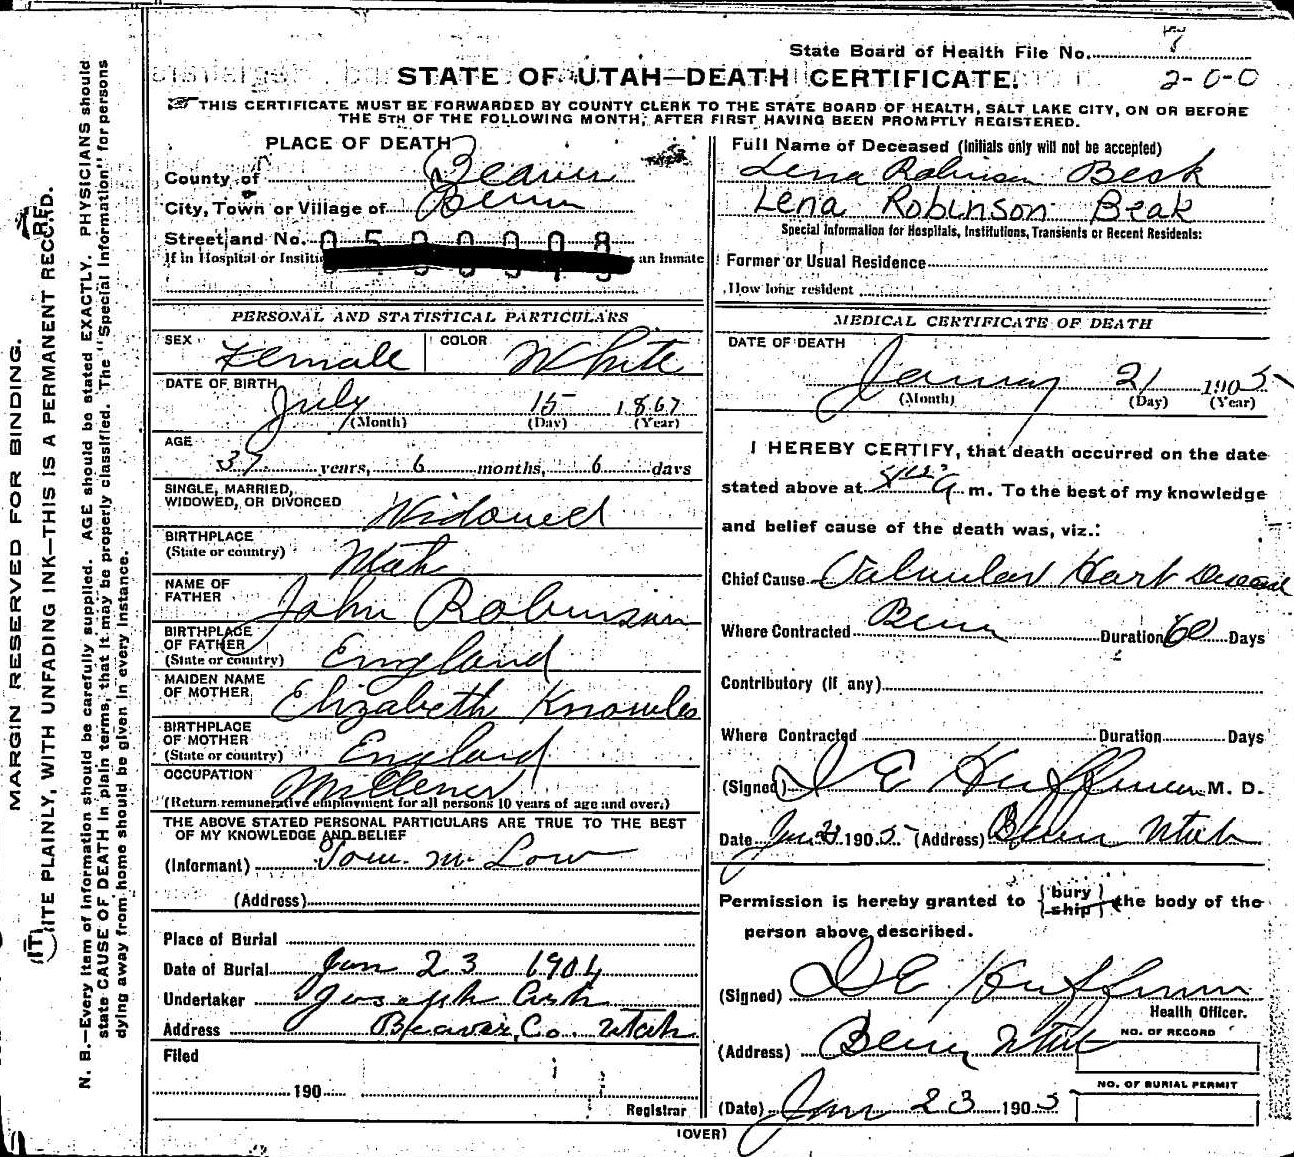 State Board of Health File No.
2-0-0
STATE OF UTAH—DEATH CERTIFICATE.
THIS CERTIFICATE MUST BE FORWARDED BY COUNTY CLERK TO THE STATE BOARD OF HEALTH, SALT LAKE CITY, ON OR BEFORE
THE 5TH OF THE FOLLOWING MONTH, AFTER FIRST HAVING BEEN PROMPTLY REGISTERED.
MARGIN RESERVED FOR BINDING.
WRITE PLAINLY, WITH UNFADING INK—THIS IS A PERMANENT RECORD.
N. B.—Every item of information should be carefully supplied. AGE should be stated EXACTLY. PHYSICIANS should
state CAUSE OF DEATH in plain terms, that it may be properly classified. The "Special Information" for persons
dying away from home should be given in every instance.
PLACE OF DEATH
County of Beaver
City, Town or Village of Beaver
Street and No.
If in Hospital or Instituti an Inmate
PERSONAL AND STATISTICAL PARTICULARS
SEX Female COLOR White
DATE OF BIRTH July 15 1867
(Month) (Day) (Year)
AGE
37 years, 6 months, 6 days
SINGLE, MARRIED,
WIDOWED, OR DIVORCED Widowed
BIRTHPLACE
(State or country) Utah
NAME OF
FATHER John Robinson
BIRTHPLACE
OF FATHER
(State or country) England
MAIDEN NAME
OF MOTHER Elizabeth Knowles
BIRTHPLACE
OF MOTHER
(State or country) England
OCCUPATION Millener
(Return remunerative employment for all persons 10 years of age and over.)
THE ABOVE STATED PERSONAL PARTICULARS ARE TRUE TO THE BEST
OF MY KNOWLEDGE AND BELIEF
(Informant) Tom. M. Low
(Address)
Place of Burial
Date of Burial Jan 23 1904
Undertaker Joseph
Address Beaver, Co. Utah
Filed
190
Registrar
Full Name of Deceased (Initials only will not be accepted)
Lena Robinson Beak
Lena Robinson Beak
Special Information for Hospitals, Institutions, Transients or Recent Residents:
Former or Usual Residence
How long resident
MEDICAL CERTIFICATE OF DEATH
DATE OF DEATH
January 21 1905
(Month) (Day) (Year)
I HEREBY CERTIFY, that death occurred on the date
stated above at A. m. To the best of my knowledge
and belief cause of the death was, viz.:
Chief Cause Valvular Hart Disease
Where Contracted Beaver Duration 60 Days
Contributory (if any)
Where Contracted Duration Days
(Signed) D E Huffman M. D.
Date Jan 21 1905 (Address) Beaver Utah
Permission is hereby granted to { bury ship } the body of the
person above described.
(Signed) D E Huffman
Health Officer.
NO. OF RECORD
(Address) Beaver Utah
NO. OF BURIAL PERMIT
(Date) Jan 23 1905
(OVER)